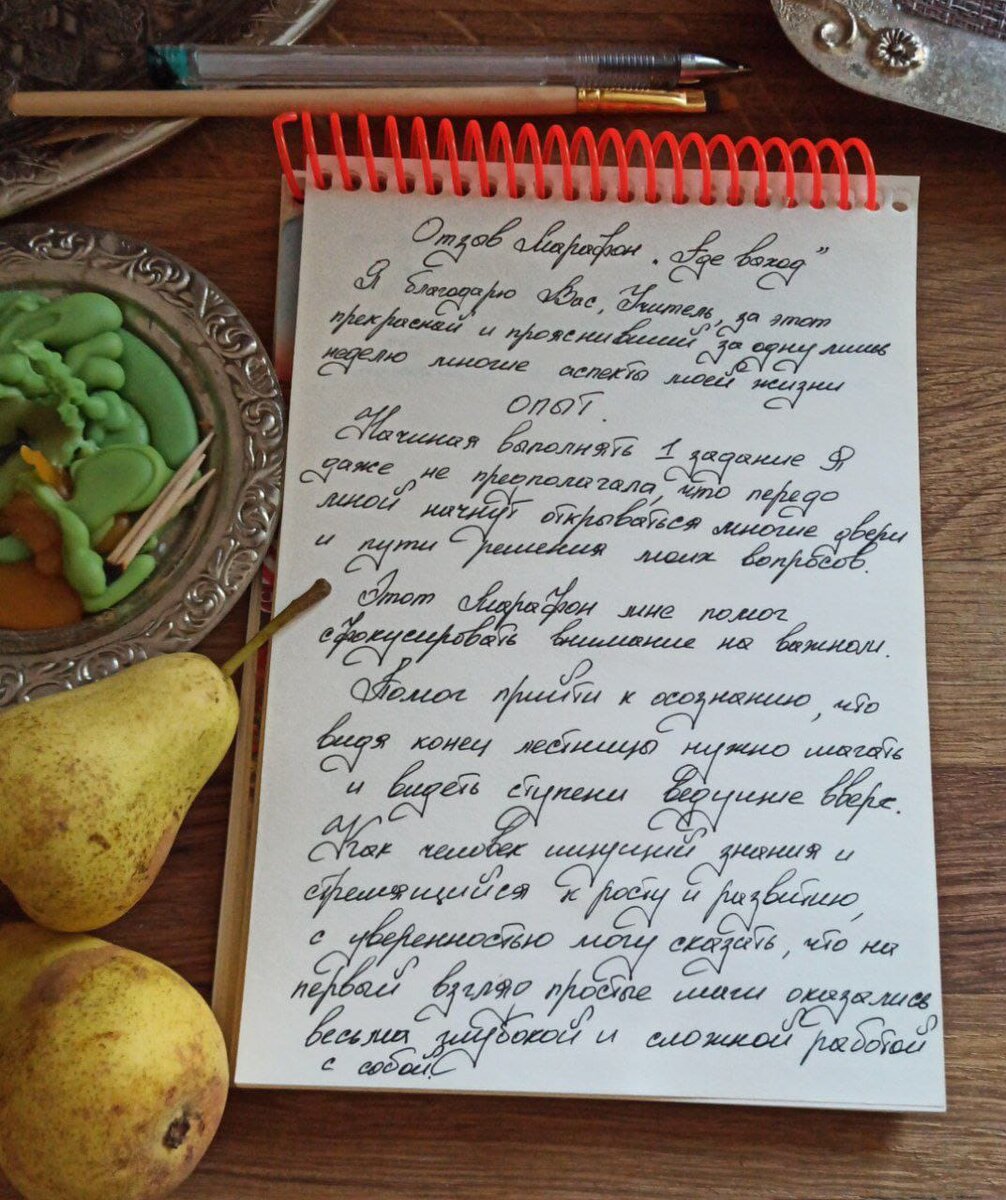 Отзыв Марафон „Где выход"
Я благодарю Вас, Учитель, за этот
прекрасный и прояснивший за одну лишь
неделю многие аспекты моей жизни
опыт.
Начиная выполнять 1 задание Я
даже не предполагала, что передо
мной начнут открываться многие двери
и пути решения моих вопросов.
Этот Марафон мне помог
сфокусировать внимание на важном.
Помог прийти к осознанию, что
видя конец лестницы нужно шагать
и видеть ступени ведущие вверх.
Как человек ищущий знания и
стремящийся к росту и развитию,
с уверенностью могу сказать, что на
первый взгляд простые шаги оказались
весьма глубокой и сложной работой
с собой.